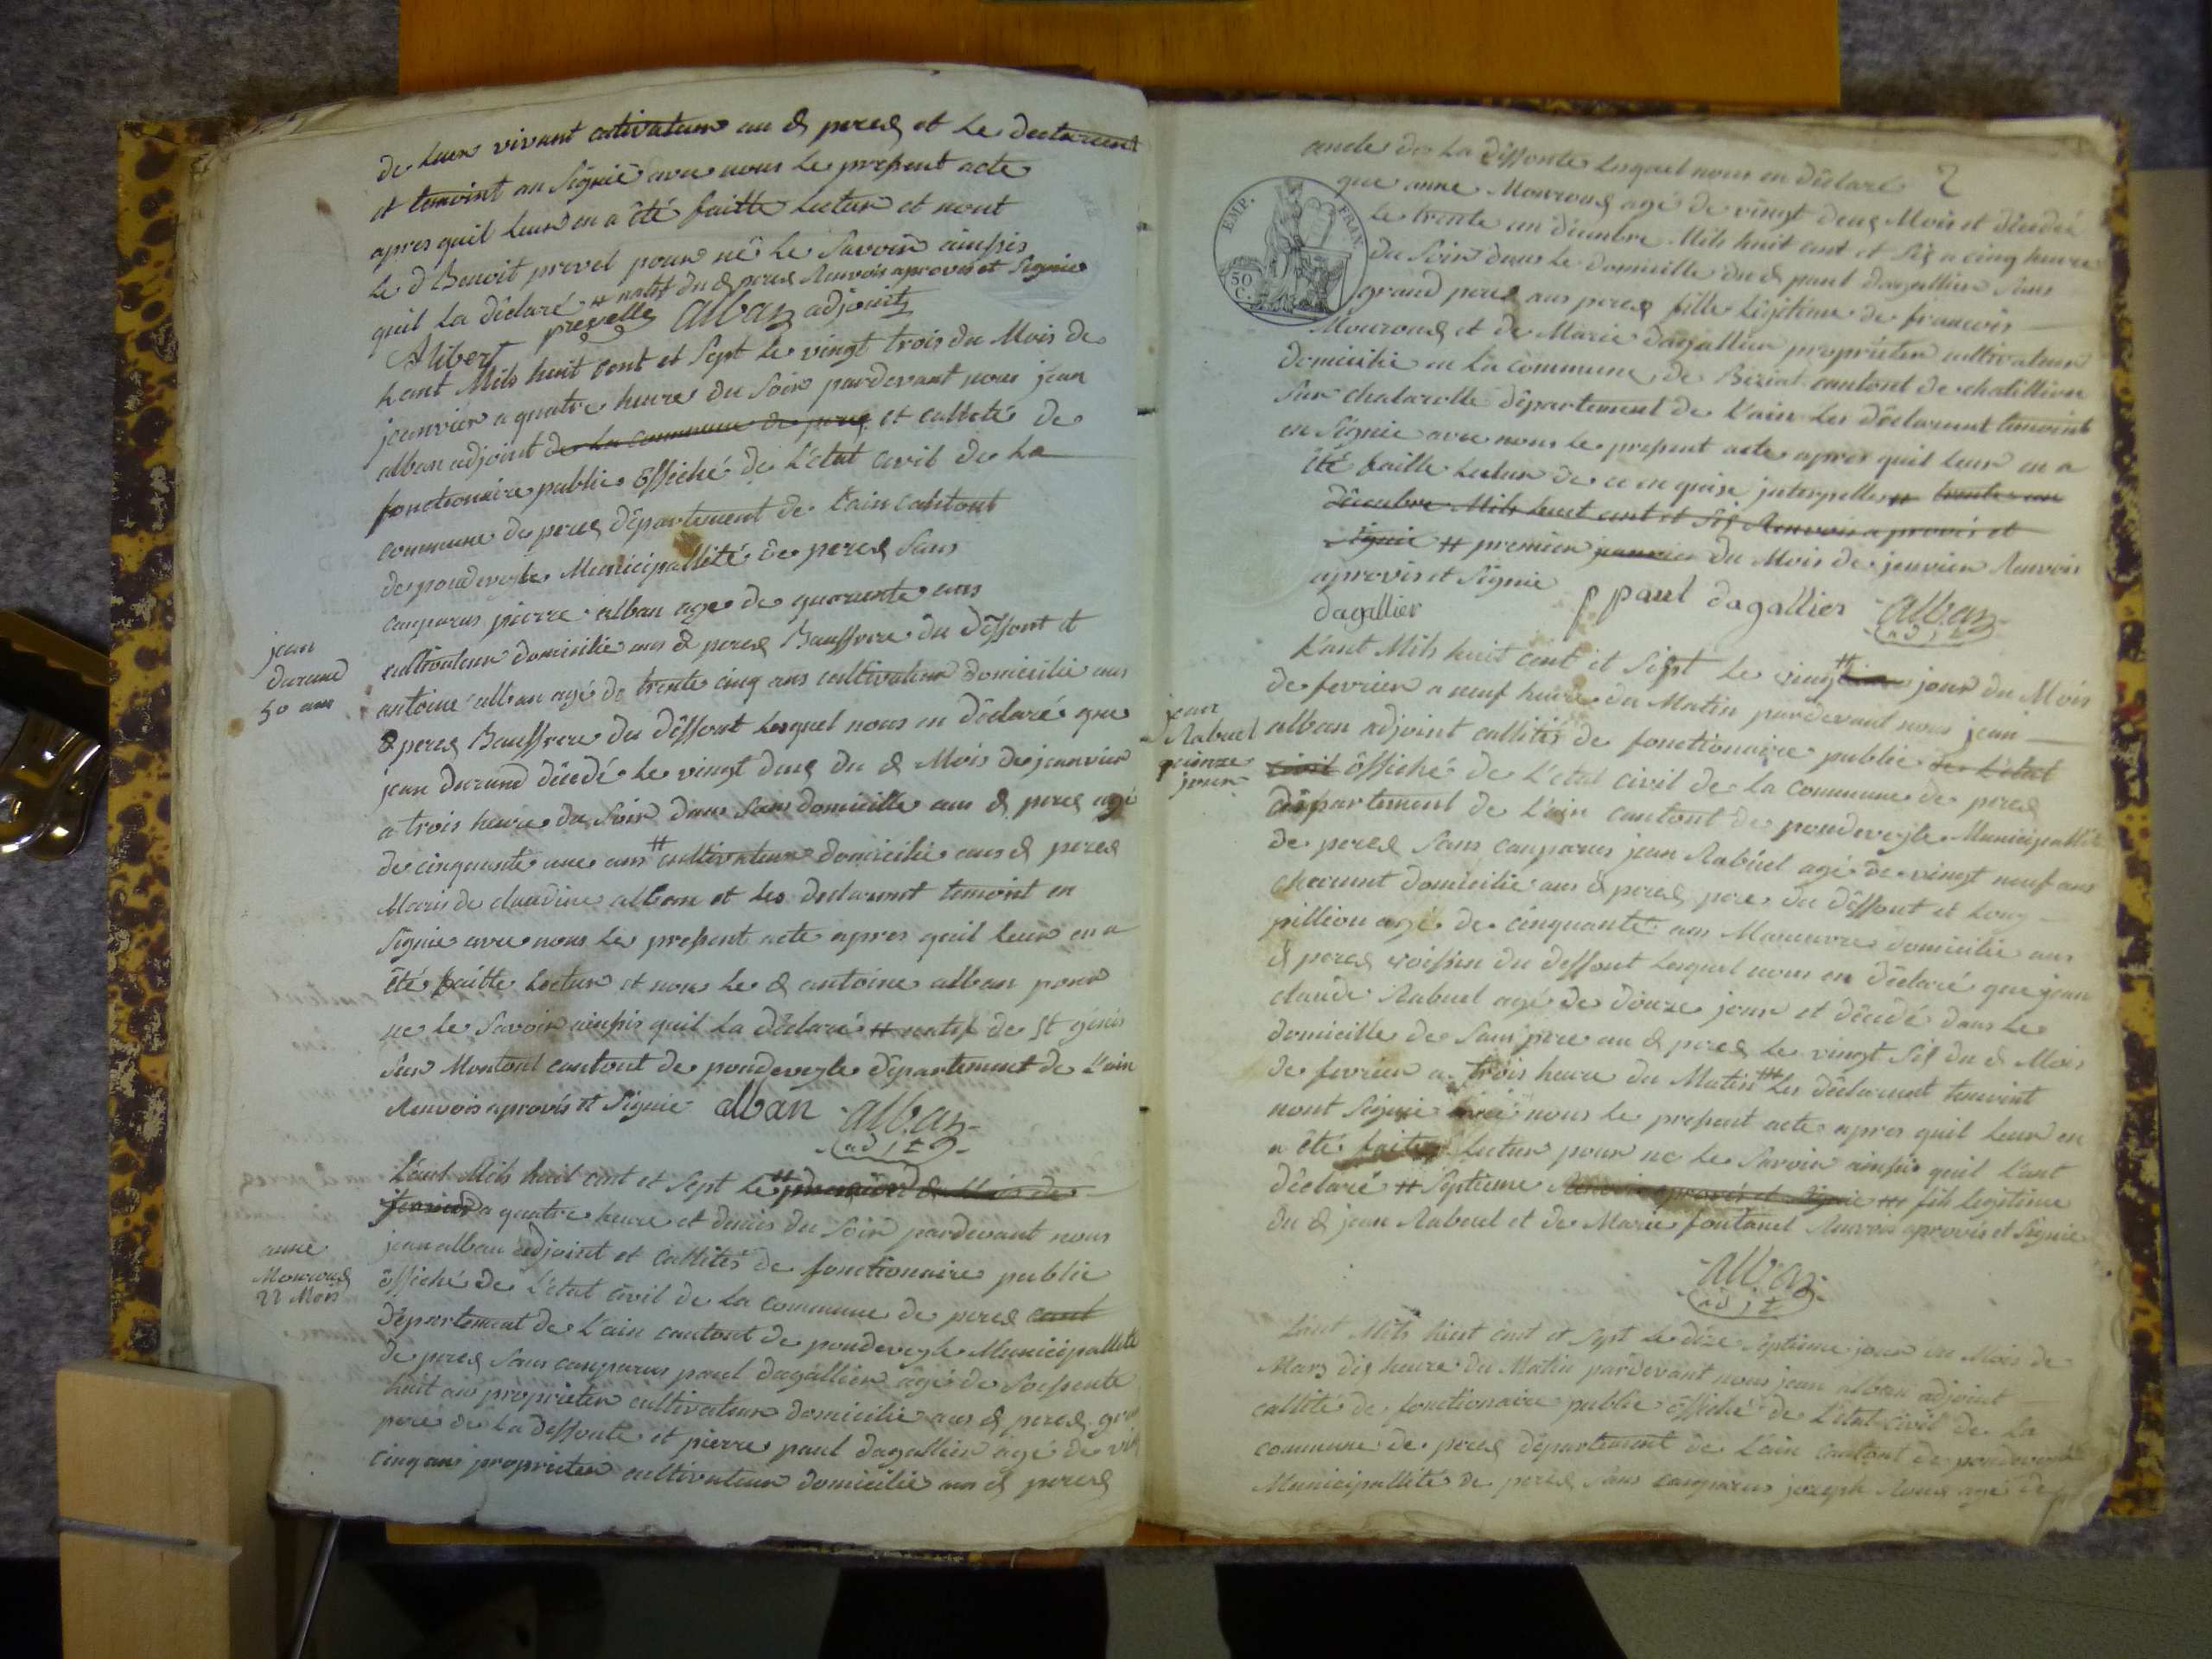 de leur vivant cultivateur au d perex et le declarent
et temoint on signié avec nous le present acte
apres quil leur en a été faitte lectur et nont
le d Benoit prevel pour ne le savoir ainssis
quil la déclaré # natif du d perex Renvois aprovés et signié
Alibert prevelle alban adjoint
Lant Mils huit cent et sept le vingt trois du Mois de
jeanvier a quatre heure du soir pardevant nous jean
alban adjoint de la commune de perex et callité de
fonctionaire public offiché de L'etat civil de La
commune de perex département de Lain cantont
de pondeveyle Municipallité de perex sans
comparus pierre alban age de quarante ans
cultivateur domicilié aus d perex Baussrere du deffont et
antoine alban agé de trente cinq ans cultivateur domicilié aus
d perex Baussrere du deffont lesquel nous en déclaré que
jean durand décedé le vingt deux du d Mois de jeanvier
a trois heure du soir dans sans domicille au d perex agé
de cinquante une ans # cultivateur domicilié aus d perex
Maris de claudine alban et les declarent temoint en
signié avec nous le present acte apres quil leur en a
été faitte lectur et non le d antoine alban pour
ne le savoir ainssis quil la déclaré # natif de st génis
sur Montont cantont de pondeveyle département de L'ain
Renvois aprovés et signié alban alban
adjt
jean
durand
50 ans
L'ant Mils huit cent et sept le # premier d Mois de
fevrier a quatre heure et demis du soir pardevant nous
jean alban adjoint et callités de fonctionaire public
offiché de L'etat civil de la commune de perex cant
département de L'ain cantont de pondeveyle Municipallité
de perex sans comparus paul dagallier agé de soissente
huit ans proprieter cultivateur domicilié aus d perex gran
pere de la deffonte et pierre paul dagallier agé de vin
cinq ans proprieter cultivateur domicilié aus d perex
anne
Mouroux
22 Mois
2
oncle de la deffonte lesquel nous en déclaré
que anne Mouroux agé de vingt deux Mois et décedé
le trente un décembre Mils huit cent et six a cinq heure
du soir dans le domicille du d paul dagallier sans
grand pere aus perex fille legitime de francois
Mouroux et de Marie dagallier proprieter cultivateur
domicilié en la commune de Biziat cantont de chatillion
sur chalaronne département de L'ain les déclarent temoint
en signié avec nous le present acte apres quil leur en a
été faitte lectur de ce en quise interpelle # trente un
décembre Mils huit cent et six Renvois aprovés et
signié # premier jeanvier du Mois de jeanvier Renvois
aprovés et signié
dagallier p paul dagallier alban
adjt
EMP. FRAN.
50
C.
L'ant Mils huit cent et sept le vingt # jour du Mois
de fevrier a neuf heure du Matin pardevant nous jean
alban adjoint callités de fonctionaire public de L'etat
civil offiché de L'etat civil de la commune de perex
département de L'ain cantont de pondeveyle Municipallité
de perex sans comparus jean Rabuel agé de vingt neuf ans
domicilié aus d perex pere du deffont et
pillion agé de cinquante ans Maneuvre domicilié aus
d perex voissin du deffont lesquel nous en déclaré que jean
claude Rabuel agé de douze jour et décedé dans le
domicille de sans pere au d perex le vingt six du d Mois
de fevrier a trois heure du Matin ### les déclarent temoint
nont signié avec nous le present acte apres quil leur en
a été faitte lectur pour ne le savoir ainssis quil L'ant
déclaré # septieme Renvois aprovés et signié ### fils legitime
du d jean Rabuel et de Marie fontanel Renvois aprovés et signié
alban
adjt
jean
Rabuel
quinze
jour
Lant Mils huit cent et sept le dixe septieme jour du Mois de
Mars dix heure du Matin pardevant nous jean alban adjoint
callité de fonctionaire public offiché de L'etat civil de La
commune de perex département de L'ain cantont de pondeveyle
Municipallité de perex sans comparus joseph Roux agé de